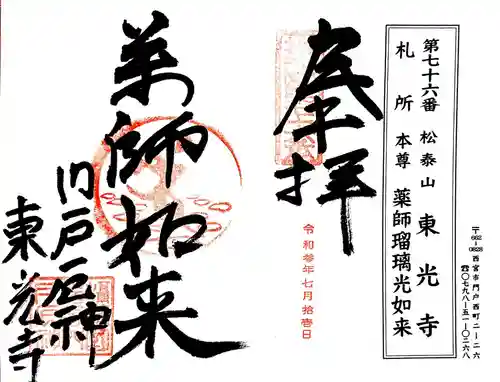 第七十六番 松泰山 東光寺
札所 本尊 薬師瑠璃光如来
〒662-0828 西宮市門戸西町二-二六
☎〇七九八-五一-〇二六八
奉拝
令和参年七月拾壱日
薬師如来
門戸厄神
東光寺